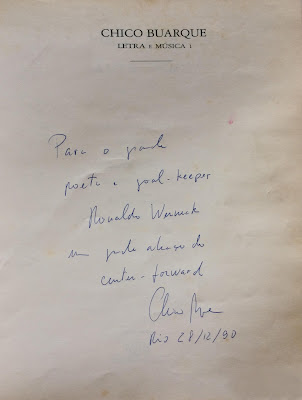 CHICO BUARQUE
LETRA E MÚSICA 1
Para o grande
poeta e goal-keeper
Ronaldo Werneck
um grande abraço do
center-forward
Chico Buarque
Rio 28/12/90